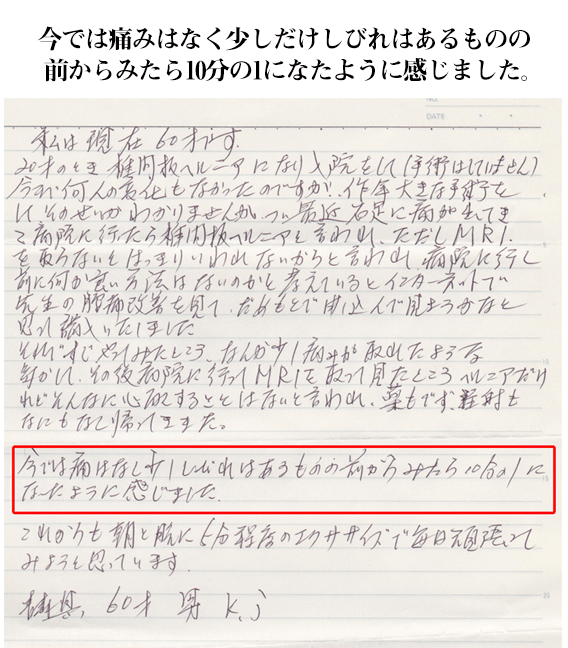 今では痛みはなく少しだけしびれはあるものの
前からみたら10分の1になたように感じました。
NO.
DATE
私は現在60才です。
20才のとき椎間板ヘルニアになり入院をして(手術はしていません)
今まで何んの変化もなかったのですが、昨年大きな手術を
して、そのせいかわかりませんが、つい最近右足に痛が出てき
て病院に行たら椎間板ヘルニアと言われ、ただしMRI
を取らないとはっきりいわれないからと言われ、病院に行く
前に何か良い方法はないのかと考えているとインターネットで
先生の腰痛改善を見て、だめもとで申込んで見ようかなと
思って購入いたしました
それですじやってみたところ、なんか少し痛みが取れたような
気がして、その後病院に行ってMRIを取って見たところヘルニアだけ
れどそんなに心配することはないと言われ、薬もでず、注射も
なにもなしで帰ってきました。
今では痛はなし少ししびれはあるものの前からみたら10分の1に
なったように感じました。
これからも朝と晩に5分程度のエクササイズで毎日頑張って
みようと思っています。
60才 男 K.J